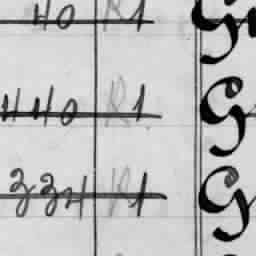 40 R1 G
440 R1 G
334 R1 G